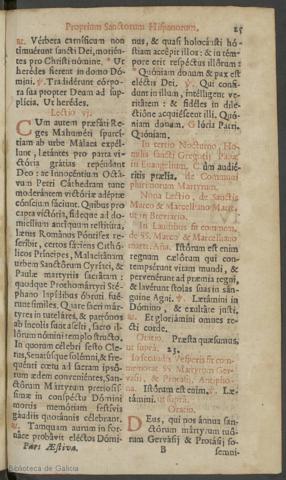 Proprium Sanctorum Hispanorum.
25
℟. Vérbera carníficum non
timuérunt sancti Dei, morién-
tes pro Christi nómine. * Ut
herédes fíerent in domo Dó-
mini. ℣. Tradidérunt córpo-
ra sua propter Deum ad sup-
plícia. Ut herédes.
Lectio vj.
CUm autem præfáti Re-
ges Mahuméti spurcí-
tiam ab urbe Málaca expél-
lunt, lætántes pro parta vi-
ctória grátias repéndunt
Deo: ac Innocéntium Octá-
vum Petri Cáthedram tunc
moderántem victóriæ adéptæ
cónscium fáciunt. Quibus pro
capta victória, fidéque ad do-
micílium antíquum restitúta,
lætus Románus Póntifex re-
scríbit, certos fáciens Cathó-
licos Príncipes, Malacitánam
urbem Sanctórum Cyríaci, &
Paulæ martyriis sacrátam:
quodque Prothomártyri Sté-
phano lapídibus óbruti fué-
runt símiles. Quare sacri már-
tyres in tuteláres, & patrónos
ab íncolis sunt ascíti, sacro il-
lórum nómini templo strúcto.
In quorum célebri festo Cle-
rus, Senatúsque solémni, & fre-
quénti cœtu ad sacram ipsó-
rum ædem conveniéntes, San-
ctórum Mártyrum pretiosís-
simæ in conspéctu Dómini
mortis memóriam festívis
gáudiis quotánnis célebrant.
℟. Tamquam aurum in for-
náce probávit eléctos Dómi-
Pars Æstiva.
nus, & quasi holocáusti hó-
stiam accépit illos: & in tém-
pore erit respéctus illórum:
* Quóniam donum & pax est
eléctis Dei. ℣. Qui confí-
dunt in illum, intélligent ve-
ritátem: & fidéles in dile-
ctióne acquiéscent illi. Quó-
niam donum. Glória Patri.
Quóniam.
In tertio Nocturno, Ho-
milia sancti Gregorii Papæ
in Evangelium, Cum audié-
ritis prælia, de Communi
plurimorum Martyrum.
Nona Lectio, de Sanctis
Marco & Marcelliano Mart.
ut in Breviario.
In Laudibus fit commem.
de SS. Marco & Marcelliano
mart. Aña. Istórum est enim
regnum cælórum qui con-
tempsérunt vitam mundi, &
pervenérunt ad prǽmia regni,
& lavérunt stolas suas in sán-
guine Agni. ℣. Lætámini in
Dómino, & exultáte justi.
℟. Et gloriámini omnes re-
cti corde.
Oratio. Præsta quæsumus,
ut supra.
23.
In secundis Vesperis fit com-
memorat. SS. Martyrum Ger-
vasii, & Protasii. Antipho-
na. Istórum est enim. ℣. Læ-
támini. ut supra.
Oratio.
DEus, qui nos ánnua san-
ctórum mártyrum tuó-
rum Gervásij & Protásij so-
B
lemni-
Biblioteca de Galicia